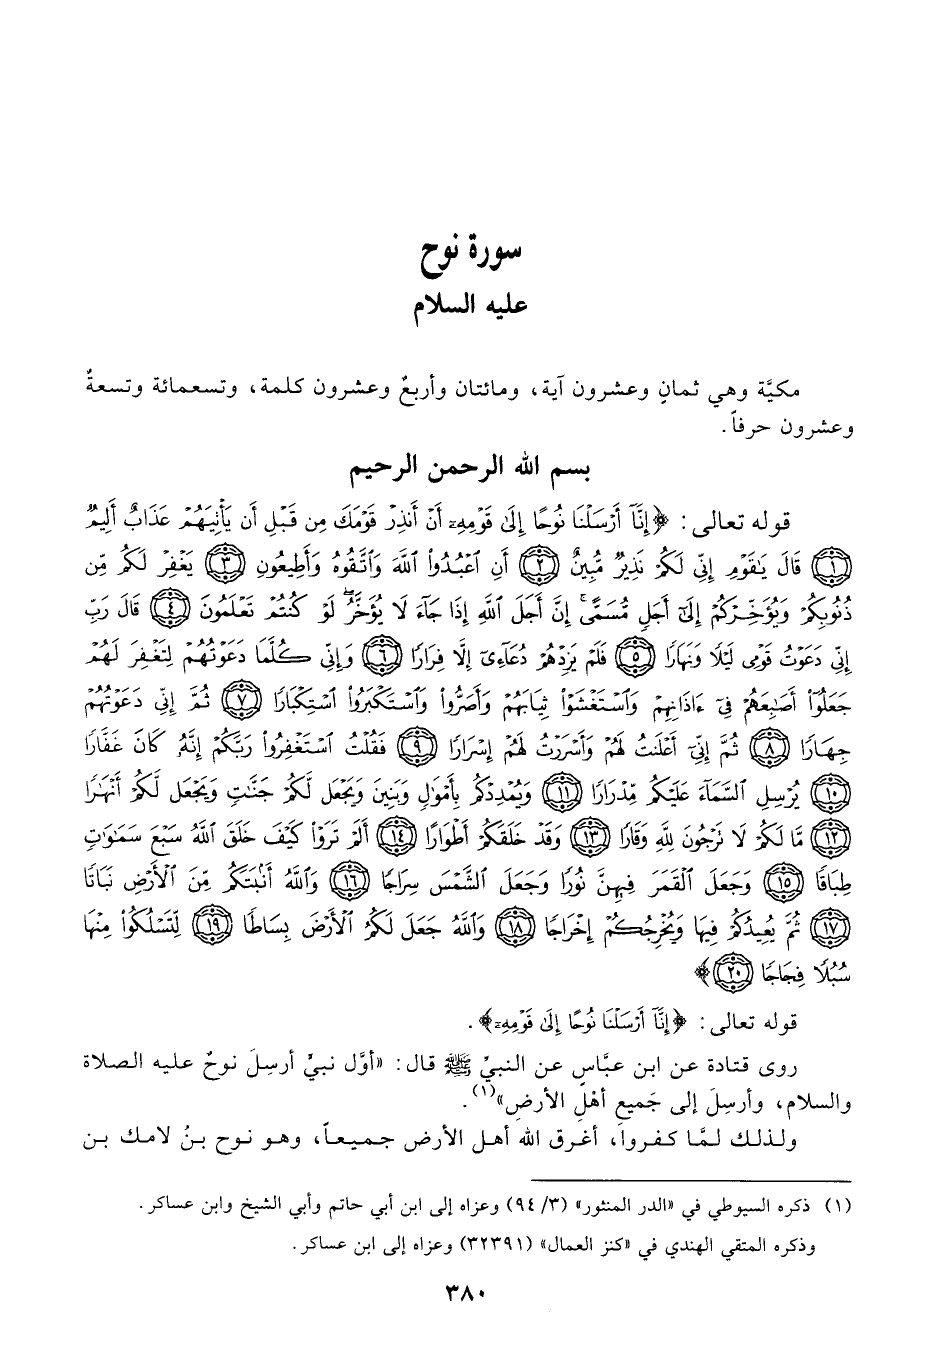 سورة نوح
عليه السلام
مكيَّة وهي ثمانٍ وعشرون آية، ومائتان وأربعٌ وعشرون كلمة، وتسعمائة وتسعةٌ
وعشرون حرفاً.
بسم الله الرحمن الرحيم
قوله تعالى: ﴿إِنَّآ أَرْسَلْنَا نُوحًا إِلَىٰ قَوْمِهِۦٓ أَنْ أَنذِرْ قَوْمَكَ مِن قَبْلِ أَن يَأْنِيَهُمْ عَذَابٌ أَلِيمٌ
﴿١﴾ قَالَ يَٰقَوْمِ إِنِّى لَكُمْ نَذِيرٌ مُّبِينٌ ﴿٢﴾ أَنِ ٱعْبُدُوا۟ ٱللَّهَ وَٱتَّقُوهُ وَأَطِيعُونِ ﴿٣﴾ يَغْفِرْ لَكُم مِّن
ذُنُوبِكُمْ وَيُؤَخِّرْكُمْ إِلَىٰٓ أَجَلٍ مُّسَمًّى ۚ إِنَّ أَجَلَ ٱللَّهِ إِذَا جَآءَ لَا يُؤَخَّرُ ۖ لَوْ كُنتُمْ تَعْلَمُونَ ﴿٤﴾ قَالَ رَبِّ
إِنِّى دَعَوْتُ قَوْمِى لَيْلًا وَنَهَارًا ﴿٥﴾ فَلَمْ يَزِدْهُمْ دُعَآءِىٓ إِلَّا فِرَارًا ﴿٦﴾ وَإِنِّى كُلَّمَا دَعَوْتُهُمْ لِتَغْفِرَ لَهُمْ
جَعَلُوٓا۟ أَصَٰبِعَهُمْ فِىٓ ءَاذَانِهِمْ وَٱسْتَغْشَوْا۟ ثِيَابَهُمْ وَأَصَرُّوا۟ وَٱسْتَكْبَرُوا۟ ٱسْتِكْبَارًا ﴿٧﴾ ثُمَّ إِنِّى دَعَوْتُهُمْ
جِهَارًا ﴿٨﴾ ثُمَّ إِنِّىٓ أَعْلَنتُ لَهُمْ وَأَسْرَرْتُ لَهُمْ إِسْرَارًا ﴿٩﴾ فَقُلْتُ ٱسْتَغْفِرُوا۟ رَبَّكُمْ إِنَّهُۥ كَانَ غَفَّارًا
﴿١٠﴾ يُرْسِلِ ٱلسَّمَآءَ عَلَيْكُم مِّدْرَارًا ﴿١١﴾ وَيُمْدِدْكُم بِأَمْوَٰلٍ وَبَنِينَ وَيَجْعَل لَّكُمْ جَنَّٰتٍ وَيَجْعَل لَّكُمْ أَنْهَٰرًا
﴿١٢﴾ مَّا لَكُمْ لَا تَرْجُونَ لِلَّهِ وَقَارًا ﴿١٣﴾ وَقَدْ خَلَقَكُمْ أَطْوَارًا ﴿١٤﴾ أَلَمْ تَرَوْا۟ كَيْفَ خَلَقَ ٱللَّهُ سَبْعَ سَمَٰوَٰتٍ
طِبَاقًا ﴿١٥﴾ وَجَعَلَ ٱلْقَمَرَ فِيهِنَّ نُورًا وَجَعَلَ ٱلشَّمْسَ سِرَاجًا ﴿١٦﴾ وَٱللَّهُ أَنۢبَتَكُم مِّنَ ٱلْأَرْضِ نَبَاتًا
﴿١٧﴾ ثُمَّ يُعِيدُكُمْ فِيهَا وَيُخْرِجُكُمْ إِخْرَاجًا ﴿١٨﴾ وَٱللَّهُ جَعَلَ لَكُمُ ٱلْأَرْضَ بِسَاطًا ﴿١٩﴾ لِّتَسْلُكُوا۟ مِنْهَا
سُبُلًا فِجَاجًا ﴿٢٠﴾﴾
قوله تعالى: ﴿إِنَّآ أَرْسَلْنَا نُوحًا إِلَىٰ قَوْمِهِۦٓ﴾.
روى قتادة عن ابن عبَّاسٍ عن النبيِّ ﷺ قال: «أوَّل نبيٍّ أرسِلَ نوحٌ عليه الصلاة
والسلام، وأرسِلَ إلى جَميعِ أهْلِ الأرضِ»(١).
ولذلك لمَّا كفروا، أغرق الله أهل الأرض جميعاً، وهو نوح بنُ لامك بن
(١) ذكره السيوطي في «الدر المنثور» (٣/ ٩٤) وعزاه إلى ابن أبي حاتم وأبي الشيخ وابن عساكر.
وذكره المتقي الهندي في «كنز العمال» (٣٢٣٩١) وعزاه إلى ابن عساكر.
٣٨٠